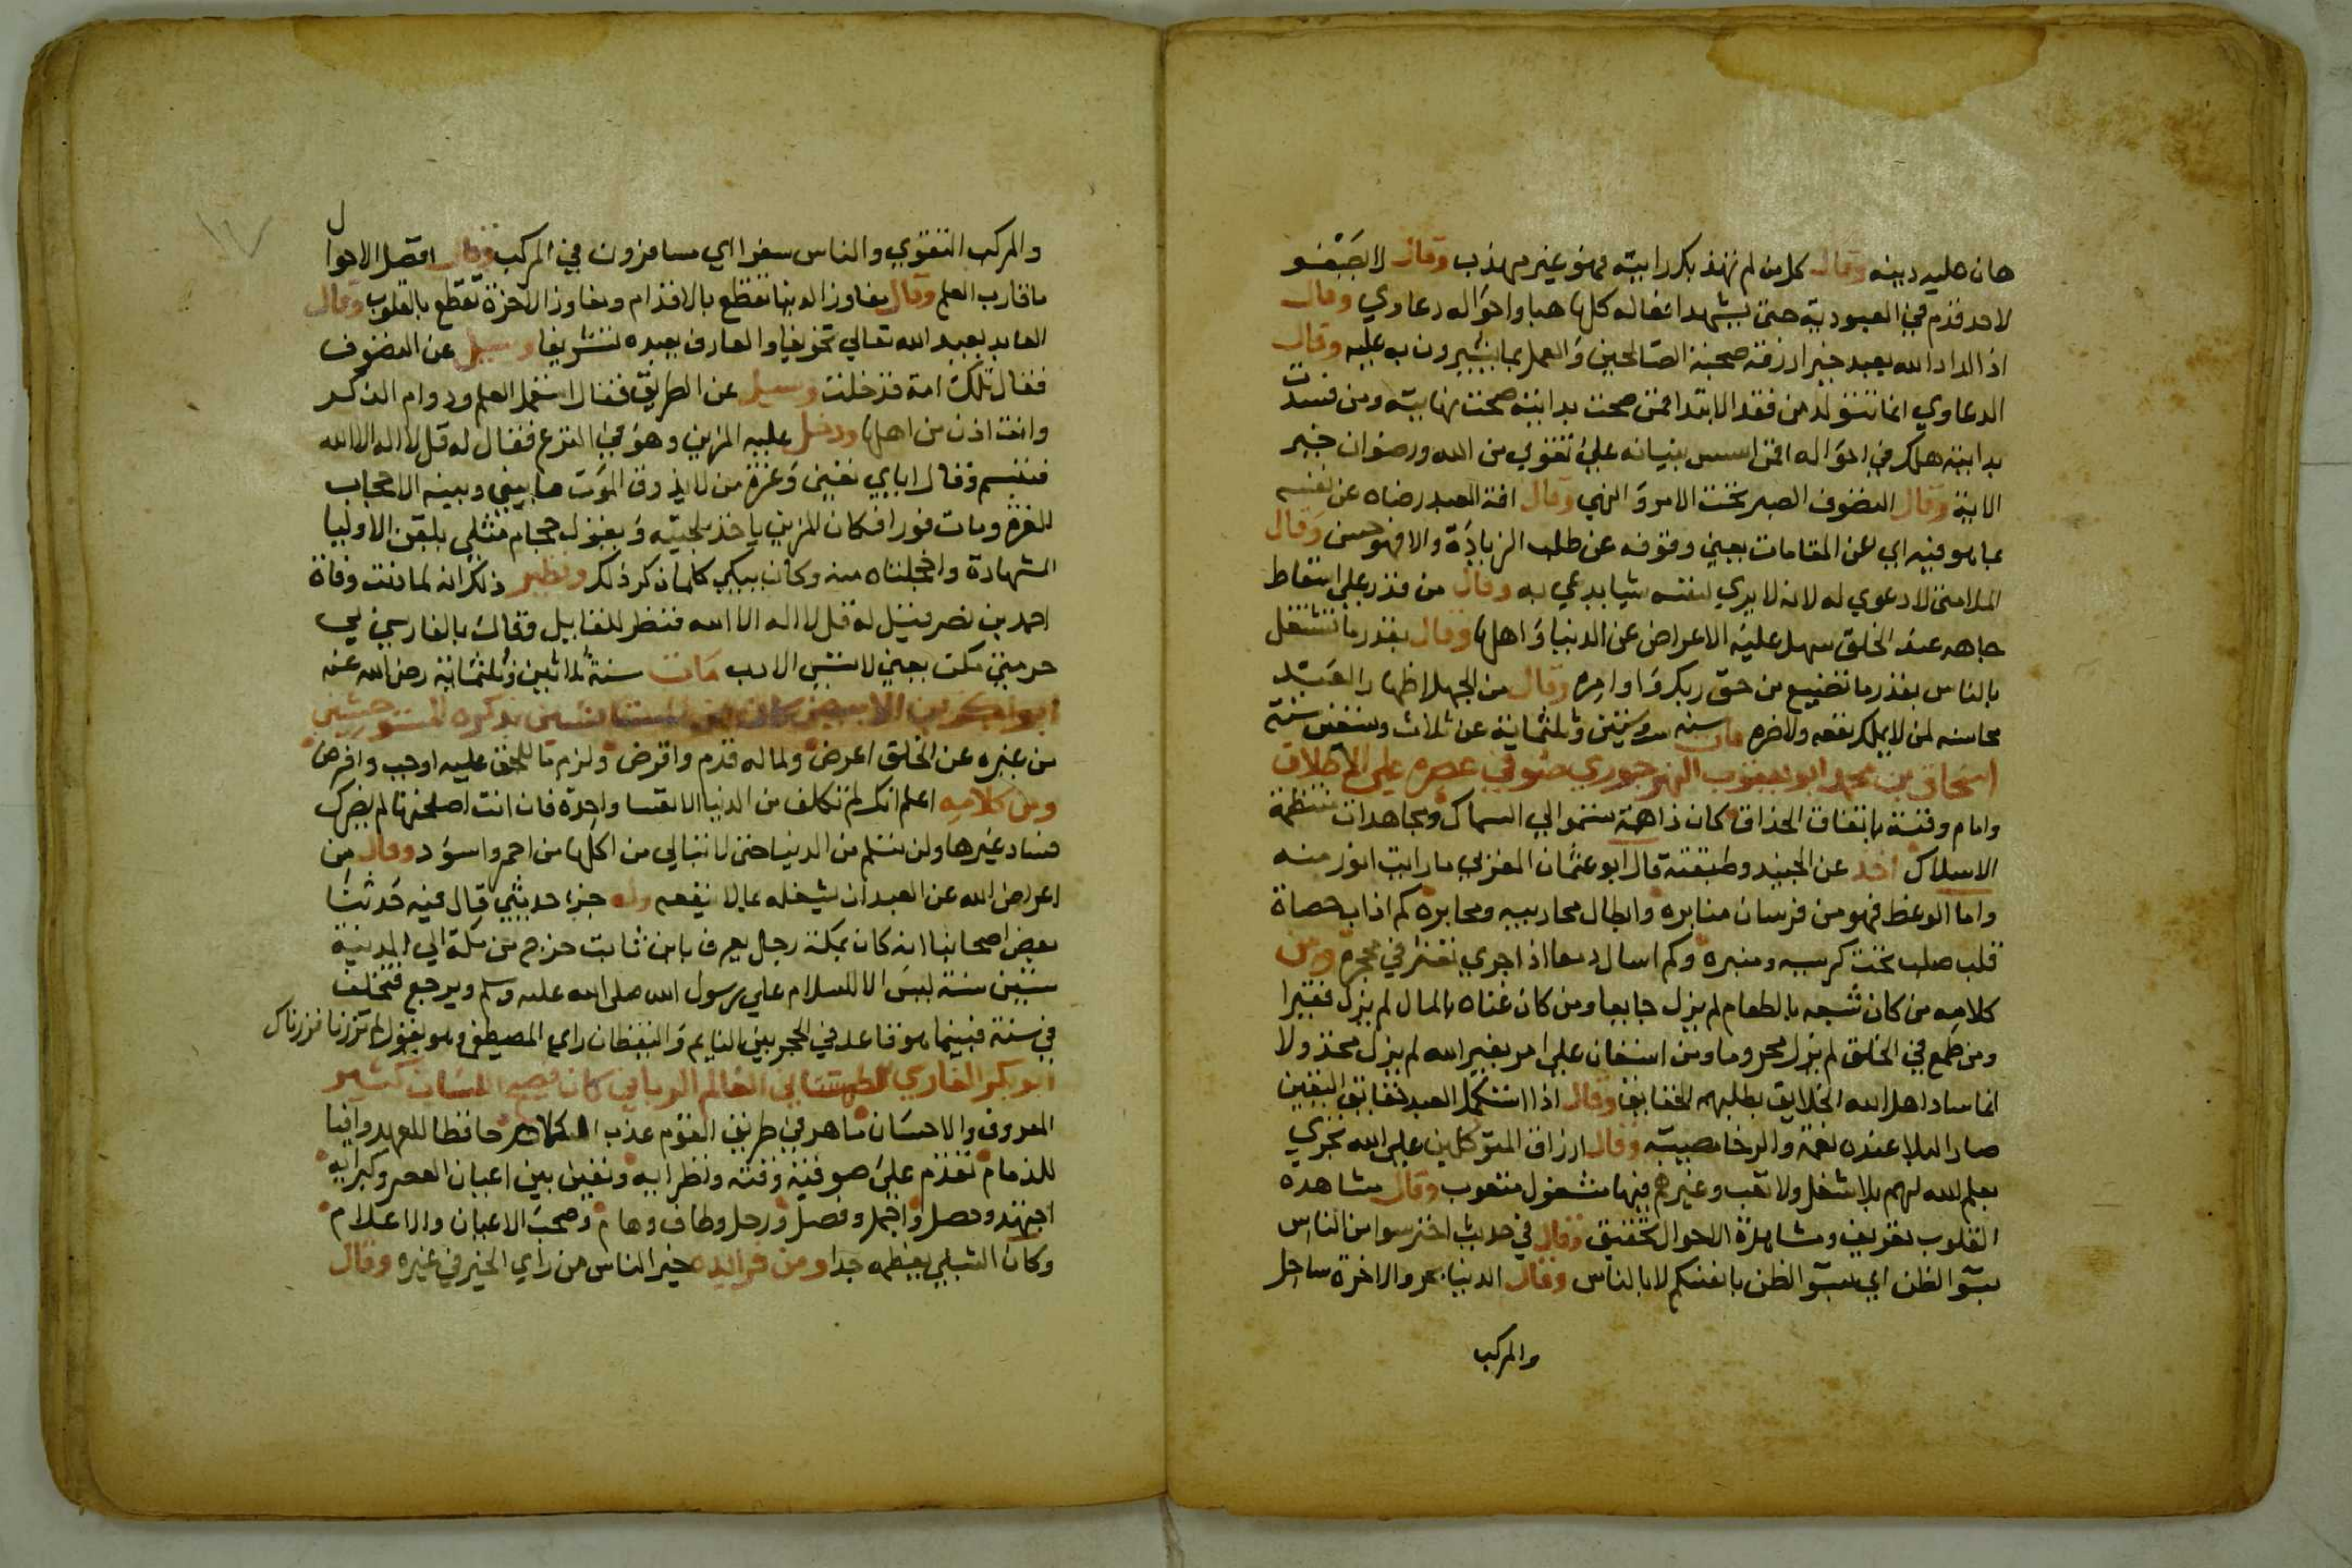 هان عليه دينه وقال كل من لم تهذبك رابيته فهو غير مهذب وقال لا يصفو
لاحد قدم في العبودية حتى يشهد افعاله كلها هبا واحواله دعاوي وقال
اذا اراد الله بعبد خيرا رزقه صحبة الصالحين والعمل بما يشيرون به عليه وقال
الدعاوي انما تتولد من فقد الابتدا فمن صحت بدايته صحت نهايته ومن فسدت
بدايته هلك في احواله افمن اسس بنيانه علي تقوي من الله ورضوان خير
الاية وقال التصوف الصبر تحت الامر والنهي وقال افة العبد رضاه عن نفسه
بما هو فيه اي عن المقامات يعني وقوفه عن طلب الزيادة والا فهو حسن وقال
الملامتي لا دعوي له لانه لا يري لنفسه شيا يدعي به وقال من قدر علي اسقاط
جاهه عند الخلق سهل عليه الاعراض عن الدنيا واهلها وقال بقدر ما تشتغل
بالناس بقدر ما تضيع من حق ربك واوامره وقال من الجهل اظهار العبد
محاسنه لمن لا يملك نفعه ولا ضره مات سنه وثلثماية عن ثلاث وستين سنة
اسحاق بن محمد ابو يعقوب النهرجوري صوفي عصره علي الاطلاق
وامام وقته باتفاق الحذاق كان ذا همة تسمو الي السماك ومجاهدات منتظمة
الاسلاك اخذ عن الجنيد وطبقته قال ابو عثمان المغربي ما رايت انور منه
واما الوعظ فهو من فرسان منابره وابطال محاريبه ومحابره كم اذاب حصاة
قلب صلب تحت كرسيه ومنبره وكم اسال دمعا اذا جري تعثر في محجره ومن
كلامه من كان شبعه بالطعام لم يزل جايعا ومن كان غناه بالمال لم يزل فقيرا
ومن طمع في الخلق لم يزل محروما ومن استعان علي امر بغير الله لم يزل مخذولا
انما ساد اهل الله الخلايق بطلبهم الحقايق وقال اذا استكمل العبد حقايق اليقين
صار البلا عنده نعمة والرخا مصيبة وقال ارزاق المتوكلين علي الله تجري
بعلم الله لهم بلا شغل ولا تعب وغيرهم فيها مشغول متعوب وقال مشاهدة
القلوب تعريف ومشاهدة الاحوال تحقيق وقال في حديث احترسوا من الناس
بسوّ الظن اي بسوّ الظن بانفسكم لا بالناس وقال الدنيا بحر والاخرة ساحل
والمركب
والمركب التقوي والناس سفرا اي مسافرون في المركب وقال افضل الاحوال
ما قارب العلم وقال مفاوز الدنيا تقطع بالاقدام ومفاوز الاخرة تقطع بالقلوب وقال
العابد يعبد الله تعالي تخويفا والعارف يعبده تشريفا وسيل عن التصوف
فقال تلك امة قد خلت وسيل عن الطريق فقال استعمل العلم ودوام الذكر
وانت اذن من اهلها ودخل عليه المزين وهو في النزع فقال له قل لا اله الا الله
فتبسم وقال اياي تعني وعزة من لا يذوق الموت ما بيني وبينه الا حجاب
العزة ومات فورا فكان المزين ياخذ بلحيته ويقول حجام مثلي يلقن الاوليا
الشهادة واخجلتاه منه وكان يبكي كلما ذكر ذلك ونظير ذلك انه لما دنت وفاة
احمد بن نصر فقيل له قل لا اله الا الله فنظر للقايل وقال بالفارسي بي
حرمتي مكن يعني لا تسي الادب مات سنة ثلاثين وثلثماية رضي الله عنه
من غيره عن الخلق اعرض ولماله قدم واقرض ولزم ما للحق عليه اوجب وافرض
ومن كلامه اعلم انك لم تكلف من الدنيا الا نفسا واحدة فان انت اصلحتها لم يضرك
فساد غيرها ولن تسلم من الدنيا حتى لا تبالي من اكلها من احمر واسود وقال من
اعراض الله عن العبد ان يشغله بما لا ينفعه وله جزء حديثي قال فيه حدثنا
بعض اصحابنا انه كان بمكة رجل يعرف بابن ثابت خرج من مكة الي المدينة
ستين سنة ليس الا للسلام علي رسول الله صلى الله عليه وسلم ويرجع فتخلف
في سنة فبينما هو قاعد في الحجر بين النايم واليقظان راي المصطفى وهو يقول لم تزرنا فزرناك
ابو بكر الفارسي الطمستاني العالم الرباني كان فصيح اللسان كثير
المعروف والاحسان ماهر في طريق القوم عذب الكلام حافظا للعهد وافيا
للذمام تقدم علي صوفية وقته ونظرايه وتعين بين اعيان العصر وكبرايه
اجتهد وحصل واجمل وفصل ورحل وطاف وهام وصحب الاعيان والاعلام
وكان الشبلي يعظمه جدا ومن فرائده خير الناس من راي الخير في غيره وقال